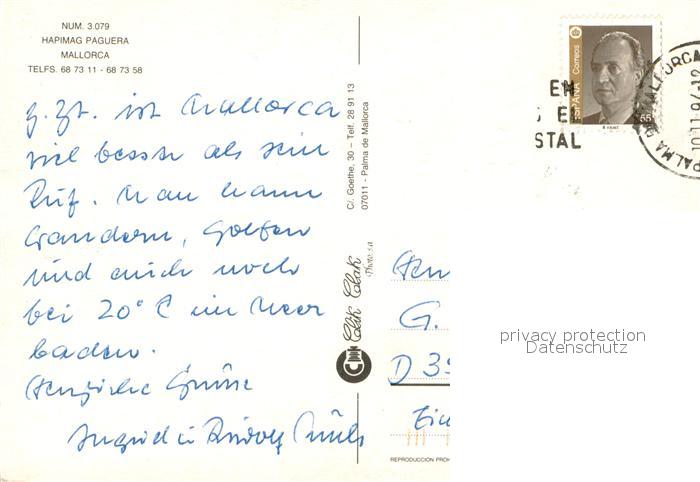 NUM. 3.079
HAPIMAG PAGUERA
MALLORCA
TELFS. 68 73 11 - 68 73 58
z. Zt. ist Mallorca
viel besser als sein
Ruf. Man kann
wandern, Golfen
und auch noch
bei 20° C im Meer
baden.
Herzliche Grüße
Ingrid u. Rudolf
C/. Goethe, 30 – Telf. 28 91 13
07011 - Palma de Mallorca
Clik Clak
Photo, s.a.
ESPAÑA Correos
55
EN
EL
STAL
PALMA DE MALLORCA
G.
D
REPRODUCCION PROH
privacy protection
Datenschutz